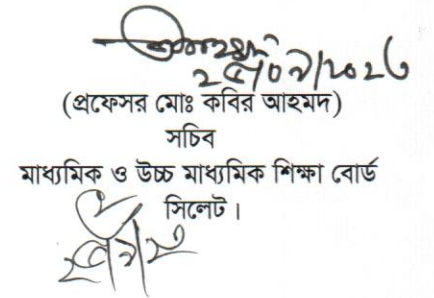 (প্রফেসর মোঃ কবির আহমদ)
সচিব
মাধ্যমিক ও উচ্চ মাধ্যমিক শিক্ষা বোর্ড
সিলেট।